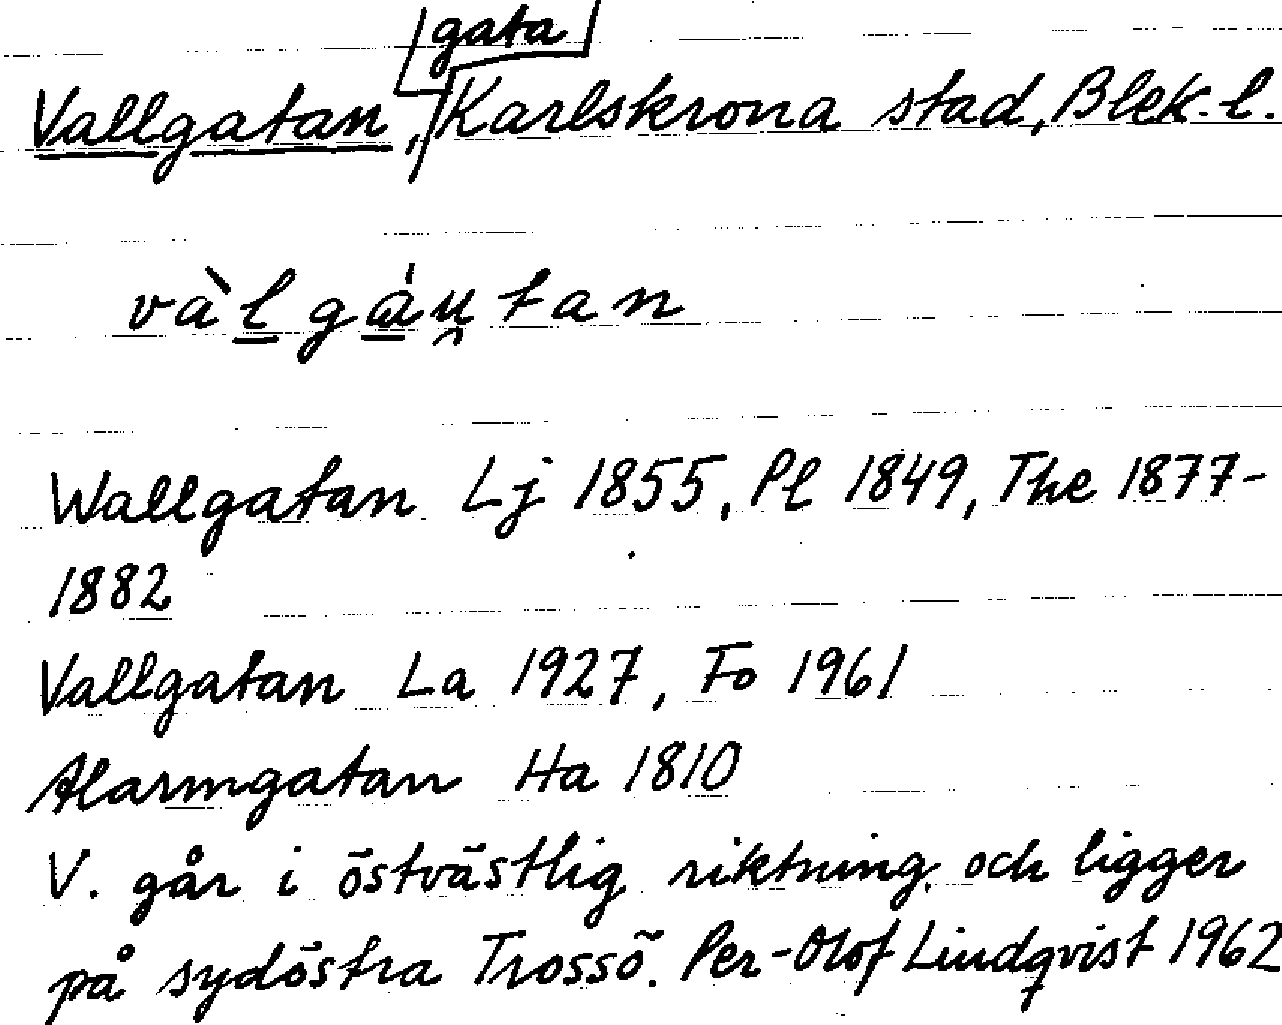 gata
Vallgatan, Karlskrona stad, Blek. l.
vàl gáu̯tan
Wallgatan Lj 1855, Pl 1849, The 1877-
1882
Vallgatan La 1927, Fo 1961
Alarmgatan Ha 1810
V. går i östvästlig riktning och ligger
på sydöstra Trossö. Per-Olof Lindqvist 1962